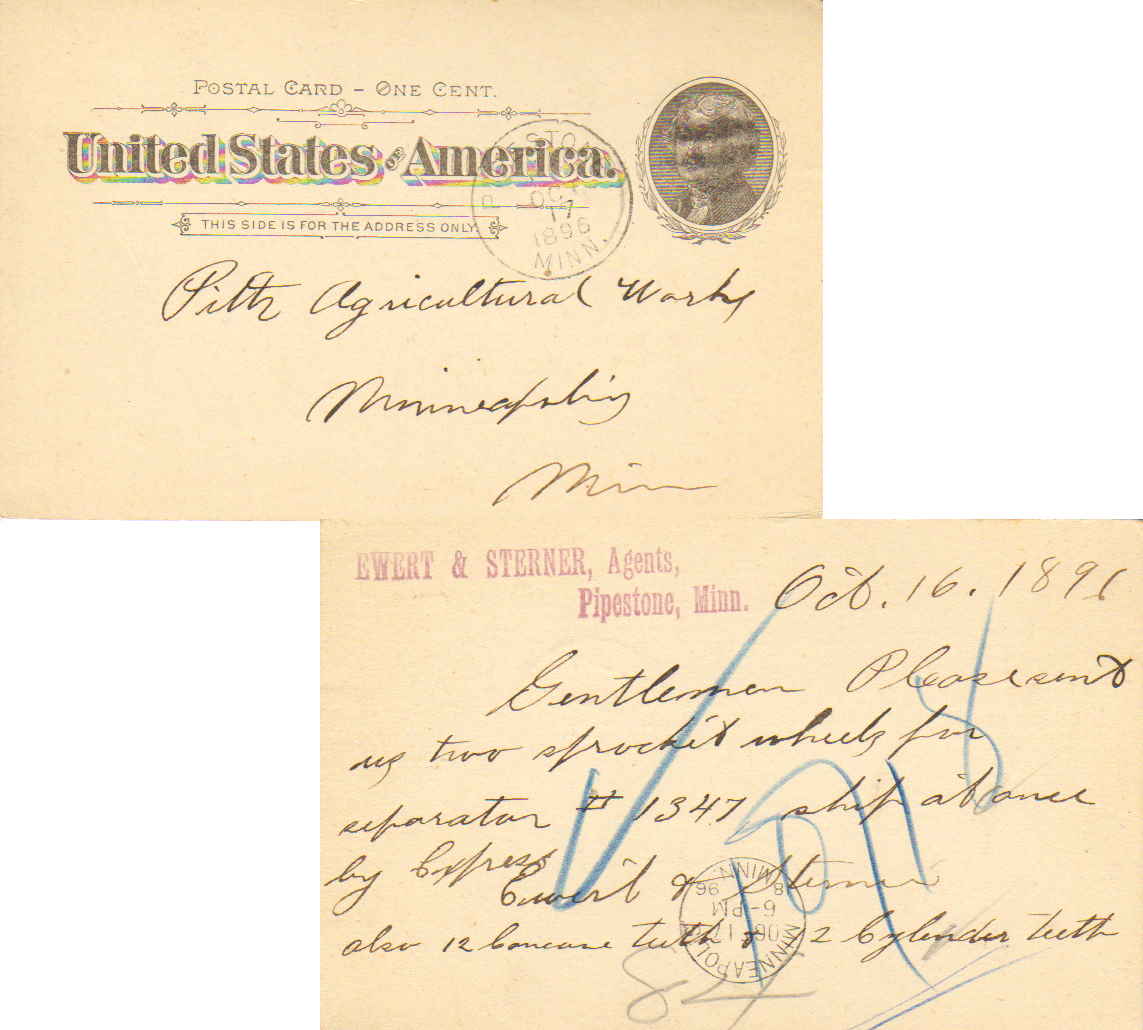 POSTAL CARD - ONE CENT.
United States of America.
THIS SIDE IS FOR THE ADDRESS ONLY.
STO
OCT
17
1896
MINN.
Pitts Agricultural Works
Minneapolis
Minn
EWERT & STERNER, Agents,
Pipestone, Minn.
Oct. 16. 1896
Gentlemen Please sent
us two sprocket wheels for
separator # 1347 ship at once
by Express
Ewert & Sterner
also 12 Concave teeth & 12 Cylinder teeth
MINNEAPOLIS
OCT 17
6-PM
8 96
MINN.